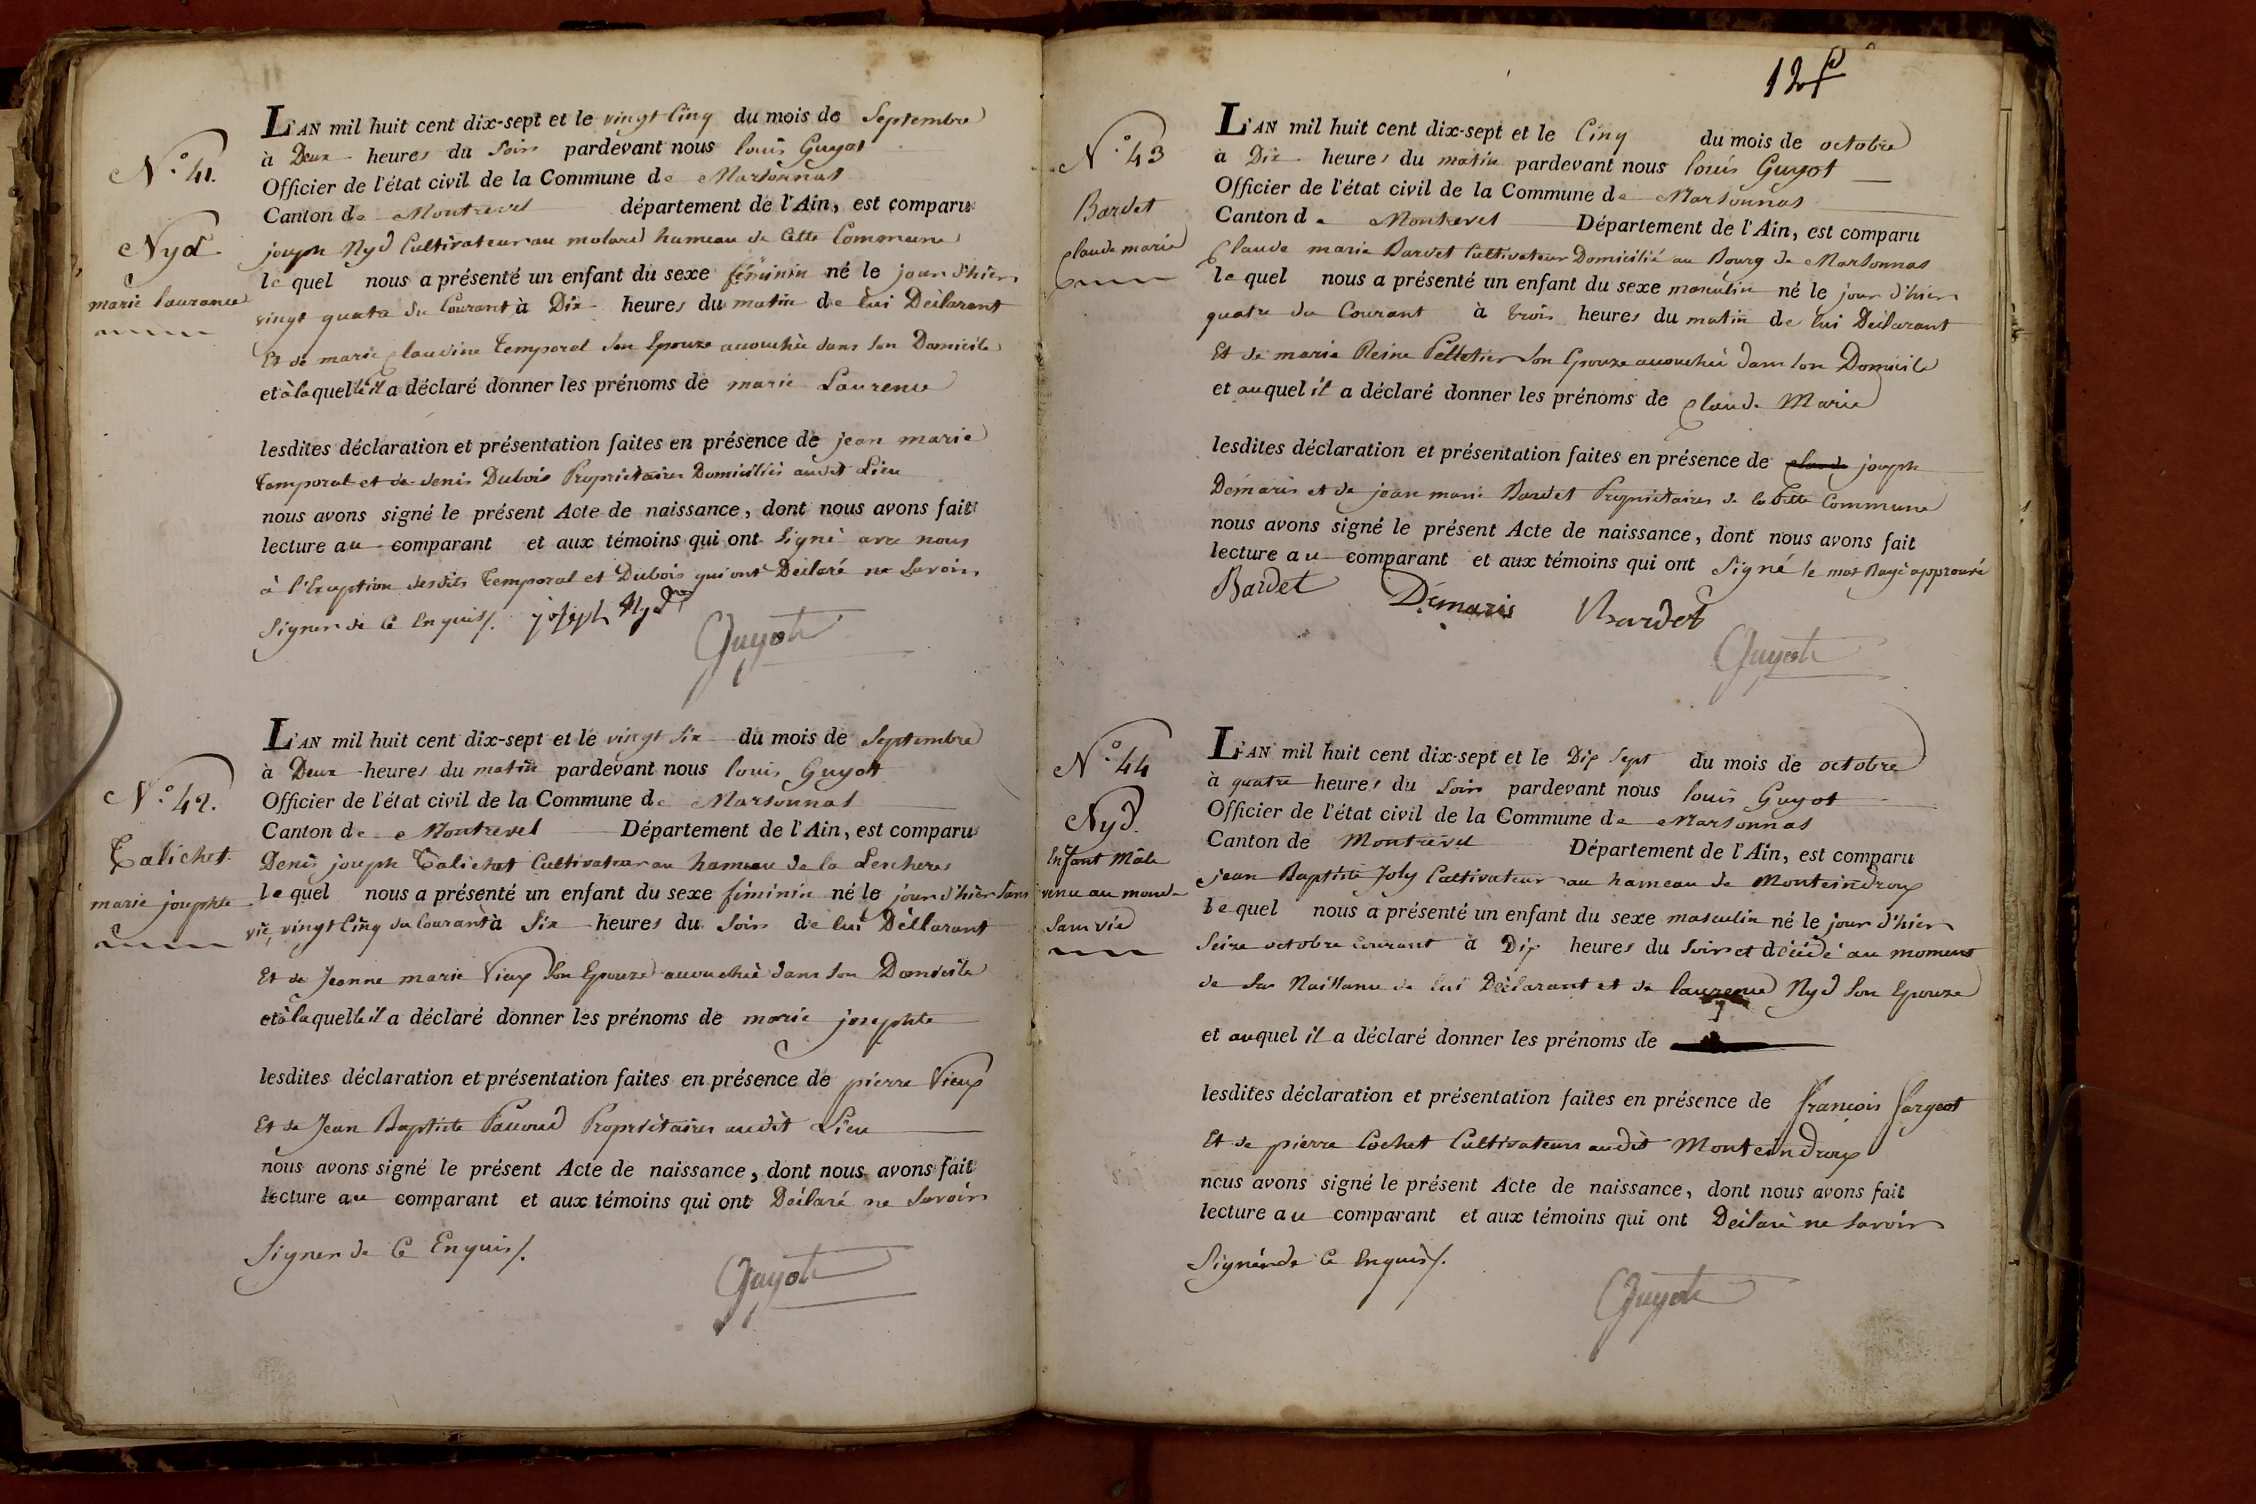 N.° 41.
Nyd
marie laurence
L'AN mil huit cent dix-sept et le vingt Cinq du mois de Septembre
à Deux heures du Soir pardevant nous louis Guyot
Officier de l'état civil de la Commune de Marsonnas
Canton de Montrevel département de l'Ain, est comparu
joseph Nyd Cultivateur au molard hameau de Cette Commune
lequel nous a présenté un enfant du sexe féminin né le jour d'hier
vingt quatre du Courant à Dix heures du matin de lui Déclarant
Et de marie Claudine Temporal Son Epouze accouchée dans Son Domicile
et à laquelle il a déclaré donner les prénoms de marie Laurence
lesdites déclaration et présentation faites en présence de jean marie
Temporal et de denis Dubois Propriétaires Domiciliés audit Lieu
nous avons signé le présent Acte de naissance, dont nous avons fait
lecture au comparant et aux témoins qui ont Signé avec nous
à l'Exception desdits Temporal et Dubois qui ont Déclaré ne Savoir
Signer de Ce Enquis/. joseph Nyd
Guyot
N.° 42.
Talichet
marie josephte
L'AN mil huit cent dix-sept et le vingt Six du mois de Septembre
à Deux heures du matin pardevant nous louis Guyot
Officier de l'état civil de la Commune de Marsonnas
Canton de Montrevel Département de l'Ain, est comparu
Denis joseph Talichet Cultivateur au hameau de la Lescheres
lequel nous a présenté un enfant du sexe féminin né le jour d'hier Sans
vie, vingt Cinq du Courant à Six heures du Soir de lui Déclarant
Et de Jeanne marie Vieux Son Epouze accouchée dans Son Domicile
et à laquelle il a déclaré donner les prénoms de marie josephte
lesdites déclaration et présentation faites en présence de pierre Vieux
Et de Jean Baptiste Pauoud Propriétaires audit Lieu
nous avons signé le présent Acte de naissance, dont nous avons fait
lecture au comparant et aux témoins qui ont Déclaré ne Savoir
Signer de Ce Enquis/.
Guyot
12
N.° 43
Bardet
Claude marie
L'AN mil huit cent dix-sept et le Cinq du mois de octobre
à Dix heures du matin pardevant nous louis Guyot
Officier de l'état civil de la Commune de Marsonnas
Canton de Montrevel Département de l'Ain, est comparu
Claude marie Bardet Cultivateur Domicilié au Bourg de Marsonnas
lequel nous a présenté un enfant du sexe masculin né le jour d'hier
quatre du Courant à trois heures du matin de lui Déclarant
Et de marie Reine Pelletier Son Epouze accouchée dans Son Domicile
et auquel il a déclaré donner les prénoms de Claude Marie
lesdites déclaration et présentation faites en présence de claude joseph
Démaris et de jean marie Bardet Propriétaires de la Cette Commune
nous avons signé le présent Acte de naissance, dont nous avons fait
lecture au comparant et aux témoins qui ont Signé le mot Rayé approuvé
Bardet Démaris Bardet
Guyot
N.° 44
Nyd.
Enfant Mâle
venu au monde
Sans vie
L'AN mil huit cent dix-sept et le Dix Sept du mois de octobre
à quatre heures du Soir pardevant nous louis Guyot
Officier de l'état civil de la Commune de Marsonnas
Canton de Montrevel Département de l'Ain, est comparu
jean Baptiste Joly Cultivateur au hameau de Monteindroux
lequel nous a présenté un enfant du sexe masculin né le jour d'hier
Seize octobre courant à Dix heures du Soir et décédé au moment
de Sa Naissance de lui Déclarant et de laurence Nyd Son Epouze
et auquel il a déclaré donner les prénoms de
lesdites déclaration et présentation faites en présence de françois fargeot
Et de pierre Cochet Cultivateurs audit Monteindroux
nous avons signé le présent Acte de naissance, dont nous avons fait
lecture au comparant et aux témoins qui ont Déclaré ne Savoir
Signer de Ce Enquis/.
Guyot